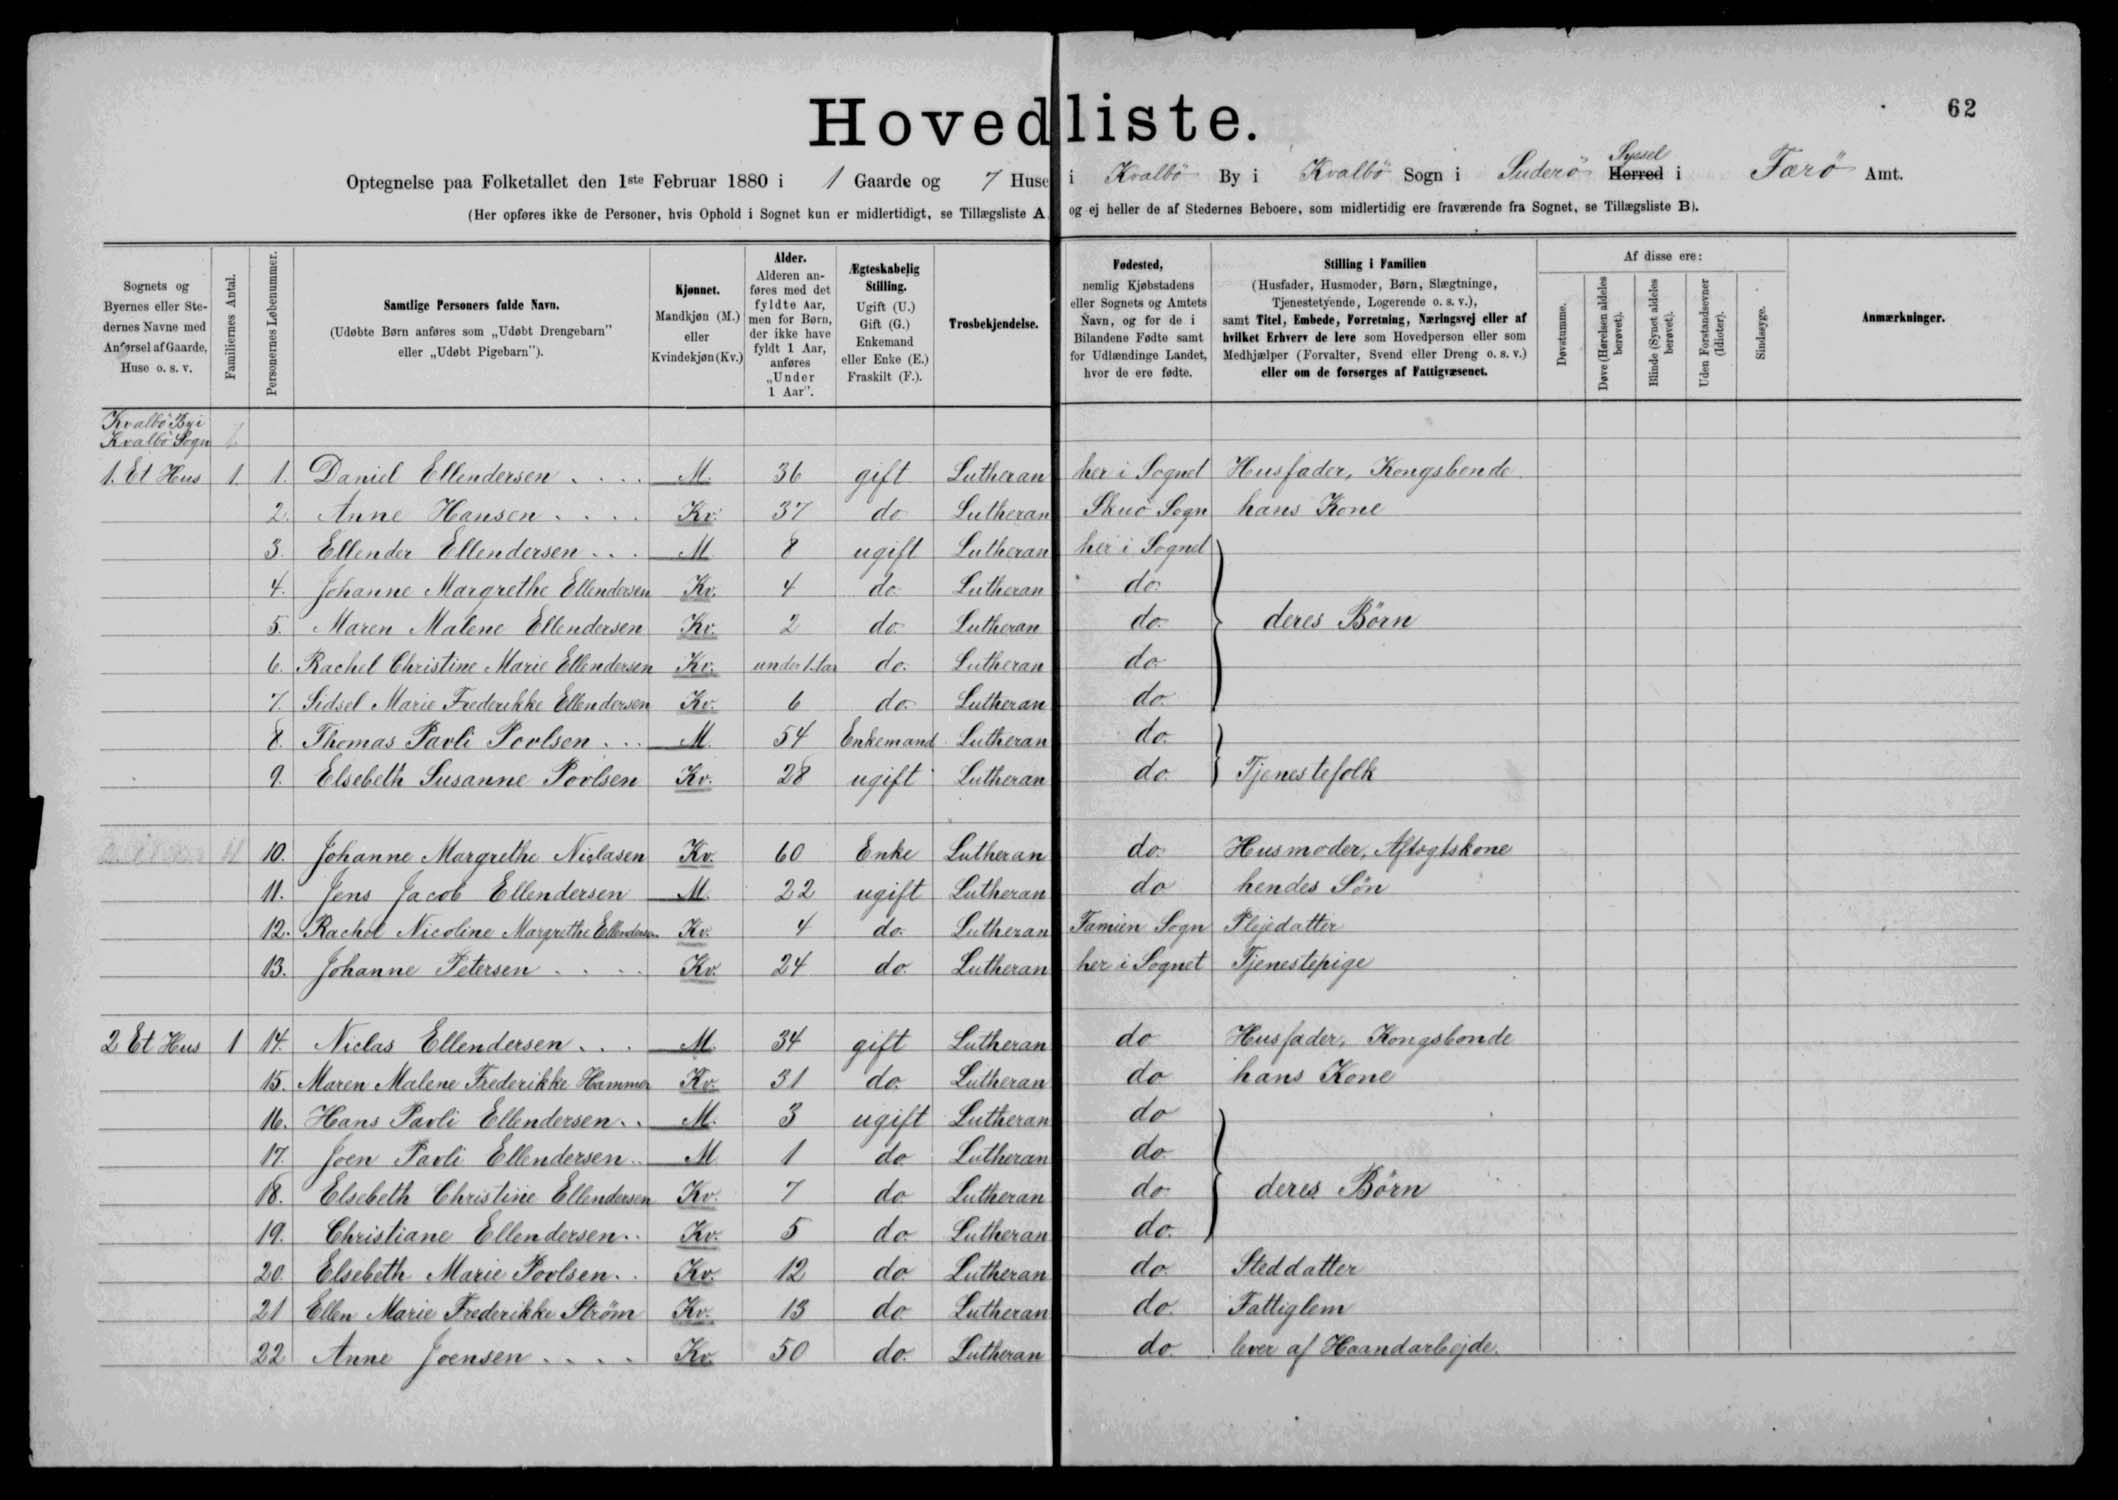 Hovedliste.
62
Optegnelse paa Folketallet den 1ste Februar 1880 i 1 Gaarde og 7 Huse i Kvalbö By i Kvalbö Sogn i Suderö Syssel Herred i Færö Amt.
(Her opføres ikke de Personer, hvis Ophold i Sognet kun er midlertidigt, se Tillægsliste A, og ej heller de af Stedernes Beboere, som midlertidig ere fraværende fra Sognet, se Tillægsliste B).
Sognets og Byernes eller Stedernes Navne med Anførsel af Gaarde, Huse o. s. v.
Familiernes Antal.
Personernes Løbenummer.
Samtlige Personers fulde Navn.
(Udøbte Børn anføres som „Udøbt Drengebarn" eller „Udøbt Pigebarn").
Kjønnet.
Mandkjøn (M.) eller Kvindekjøn (Kv.)
Alder.
Alderen anføres med det fyldte Aar, men for Børn, der ikke have fyldt 1 Aar, anføres „Under 1 Aar".
Ægteskabelig Stilling.
Ugift (U.) Gift (G.) Enkemand eller Enke (E.) Fraskilt (F.).
Trosbekjendelse.
Fødested,
nemlig Kjøbstadens eller Sognets og Amtets Navn, og for de i Bilandene Fødte samt for Udlændinge Landet, hvor de ere fødte.
Stilling i Familien
(Husfader, Husmoder, Børn, Slægtninge, Tjenestetyende, Logerende o. s. v.), samt Titel, Embede, Forretning, Næringsvej eller af hvilket Erhverv de leve som Hovedperson eller som Medhjælper (Forvalter, Svend eller Dreng o. s. v.) eller om de forsørges af Fattigvæsenet.
Af disse ere:
Døvstumme.
Døve (Hørelsen aldeles berøvet).
Blinde (Synet aldeles berøvet).
Uden Forstandsevner (Idioter).
Sindssyge.
Anmærkninger.
Kvalbö By i
Kvalbö Sogn
1. Et Hus 1. 1. Daniel Ellendersen .... M. 36 gift Lutheran her i Sognet Husfader, Kongsbonde
2. Anne Hansen .... Kv. 37 do Lutheran Skuö Sogn hans Kone
3. Ellender Ellendersen ... M 8 ugift Lutheran her i Sognet
4. Johanne Margrethe Ellendersen Kv. 4 do. Lutheran do.
5. Maren Malene Ellendersen Kv. 2 do. Lutheran do. deres Börn
6. Rachel Christine Marie Ellendersen Kv. under 1 Aar do. Lutheran do
7. Sidsel Marie Frederikke Ellendersen Kv. 6 do. Lutheran do.
8. Thomas Pavli Povlsen ... M. 54 Enkemand Lutheran do.
9. Elsebeth Susanne Povlsen Kv. 28 ugift Lutheran do. Tjenestefolk
10. Johanne Margrethe Niclasen Kv. 60 Enke Lutheran do. Husmoder, Aftægtskone
11. Jens Jacob Ellendersen M. 22 ugift Lutheran do hendes Sön
12. Rachel Nicoline Margrethe Ellendersen Kv. 4 do. Lutheran Famien Sogn Plejedatter
13. Johanne Petersen .... Kv. 24 do. Lutheran her i Sognet Tjenestepige
2 Et Hus 1 14. Niclas Ellendersen ... M. 34 gift Lutheran do Husfader, Kongsbonde
15. Maren Malene Frederikke Hammer Kv. 31 do. Lutheran do hans Kone
16. Hans Pavli Ellendersen .. M. 3 ugift Lutheran do
17. Joen Pavli Ellendersen .. M 1 do Lutheran do.
18. Elsebeth Christine Ellendersen Kv. 7 do Lutheran do. deres Börn
19. Christiane Ellendersen .. Kv. 5 do. Lutheran do.
20. Elsebeth Marie Povlsen .. Kv. 12 do. Lutheran do. Steddatter
21 Ellen Marie Frederikke Ström Kv. 13 do. Lutheran do. Fattiglem
22 Anne Joensen .... Kv. 50 do. Lutheran do. lever af Haandarbejde.